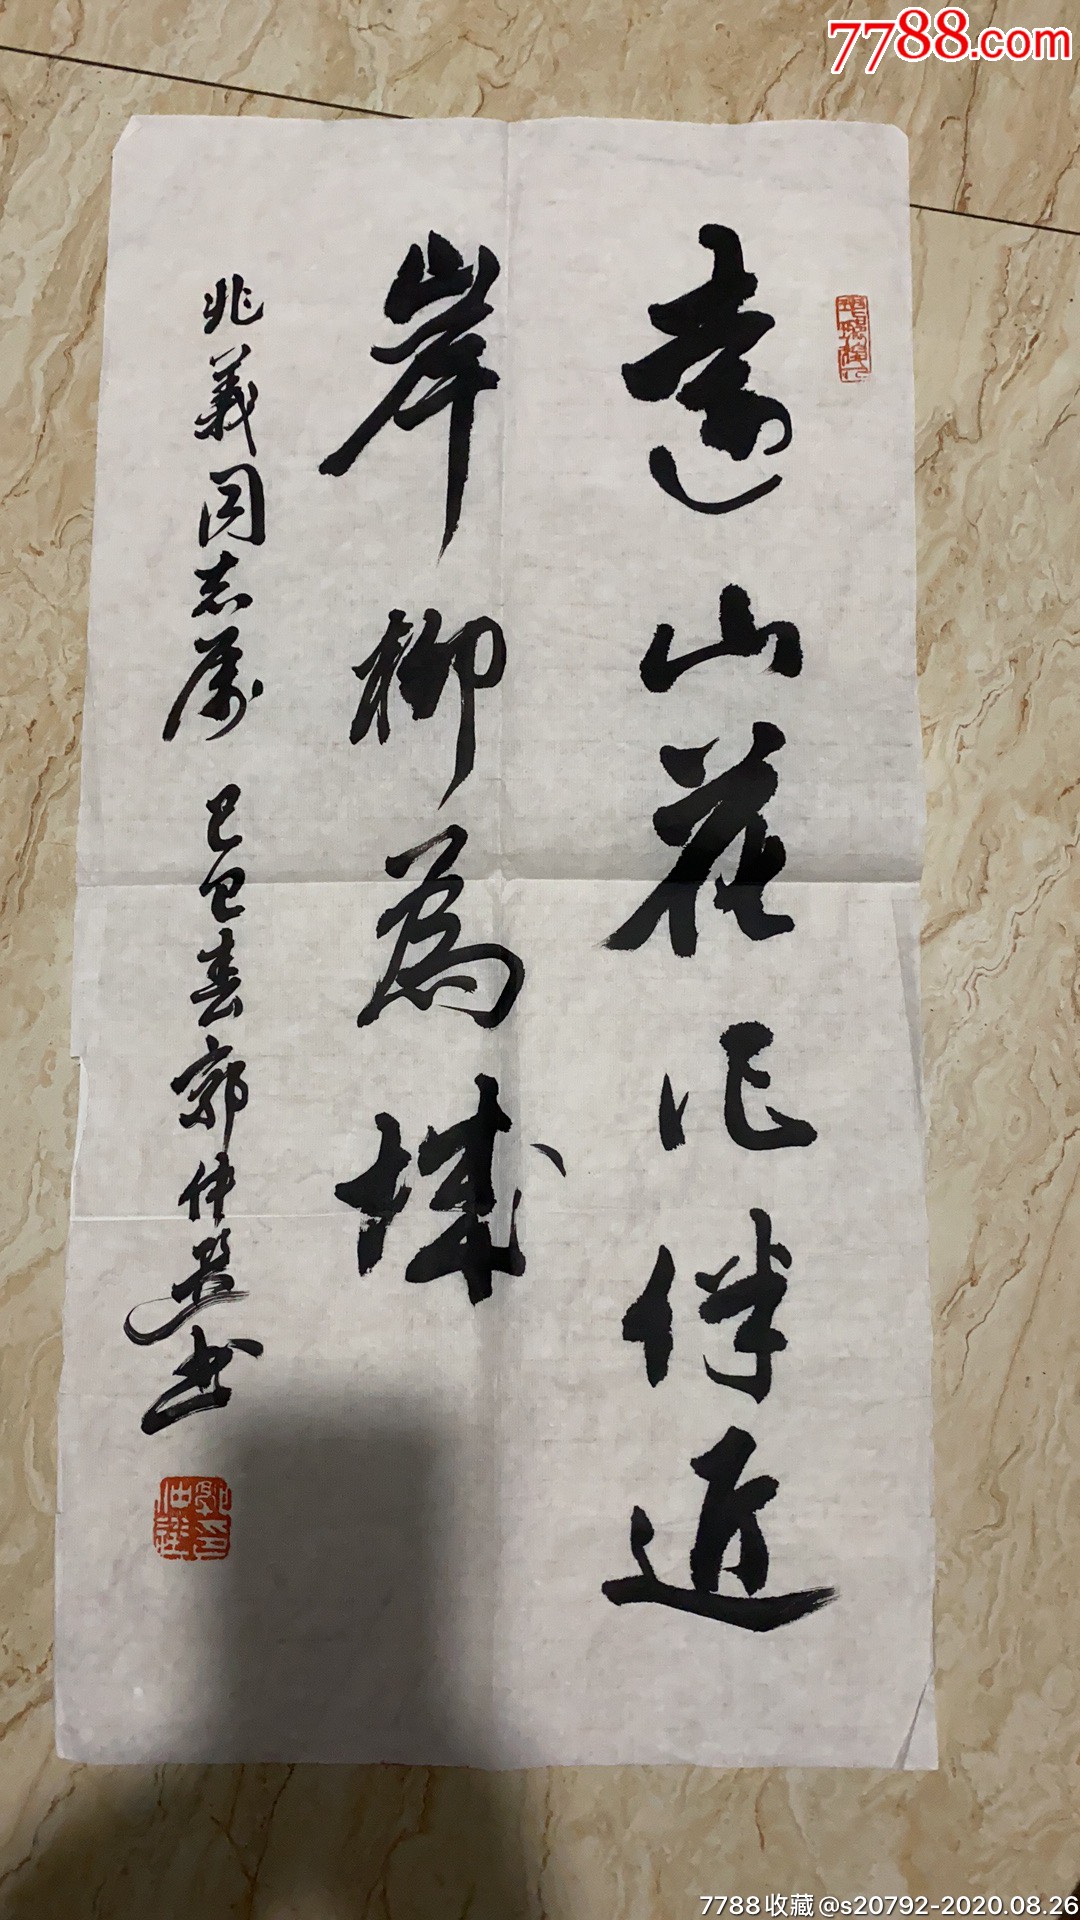 7788.com
遠山花作伴近
岸柳為城
兆義同志屬 己巳春郭仲選書
郭仲選印
7788收藏@s20792-2020.08.26